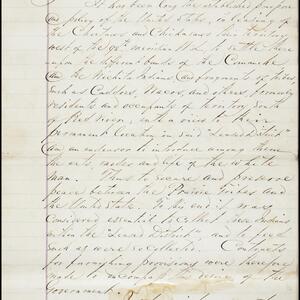 It has been long the established purpose
and policy of the United States, in leasing of
the Choctaws and Chickasaws their country
west of the 98° meridian W.L. to settle there
upon the different bands of the Comanche
and the Wichita Indians and fragments of tribes
such as Caddoes, Wacos, and others, formerly
residents and occupants of territory south
of Red River, with a view to their
permanent location in said "Leased District"
and an endeavor to introduce among them
the arts, modes and life of the white
man. Thus to secure and preserve
peace between the Prairie tribes and
the United States. To this end it was
considered essential to collect these Indians
within the "Leased District", and to feed
such as were so collected. Contracts
for furnishing provisions were therefore
made to accomplish the designs of the
Government.